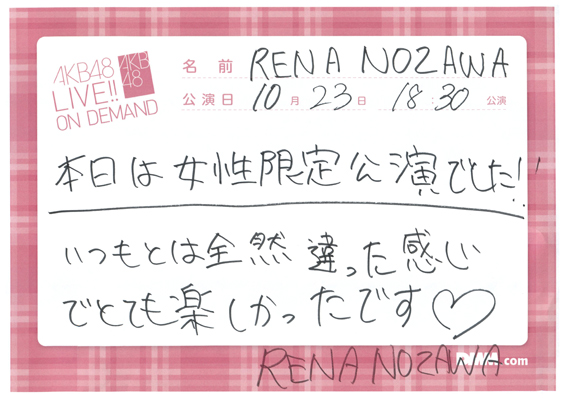 AKB48
LIVE!!
ON DEMAND
AKB
48
名前 RENA NOZAWA
公演日 10月23日 18:30 公演
本日は女性限定公演でした!!
いつもとは全然違った感じ
でとても楽しかったです♡
RENA NOZAWA
.com